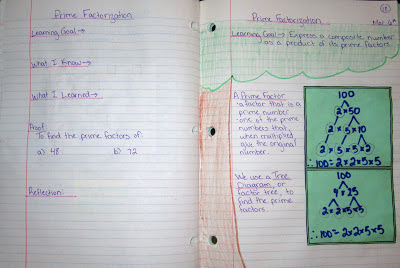 Prime Factorization
Learning Goal →
What I Know →
What I Learned →
Proof:
To find the prime factors of:
a) 48 b) 72
Reflection:
Prime Factorization
Mar 4th
Learning Goal → Express a composite number
as a product of its prime factors.
A Prime Factor
- a factor that is a
prime number
- one of the prime
numbers that,
when multiplied,
give the original
number.
We use a Tree
Diagram, or
factor tree, to
find the prime
factors.
100
2 × 50
2 × 5 × 10
2 × 5 × 5 × 2
∴ 100 = 2 × 2 × 5 × 5
100
4 × 25
2 × 2 × 5 × 5
∴ 100 = 2 × 2 × 5 × 5